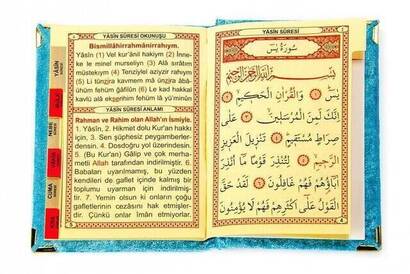 YÂSÎN SÛRESİ OKUNUŞU
Bismillâhirrahmânirrahıym.
Yâsîn (1) Vel kur'ânil hakiym (2) İnne-
ke le minel murseliyn (3) Alâ sırâtım
müstekıym (4) Tenziylel aziyzir rahıym
(5) Li tünzira kavmem mâ ünzira âbâ-
ühüm fehüm ğâfilûn (6) Le kad hakkal
kavlü alâ ekserihim fehüm lâ yü'minûn
YÂSÎN SÛRESİ ANLAMI
Rahman ve Rahim olan Allah'ın İsmiyle.
1. Yâsîn, 2. Hikmet dolu Kur'an hakkı
için, 3. Sen şüphesiz peygamberler-
densin. 4. Dosdoğru yol üzerindesin.
5. (Bu Kur'an) Gâlip ve çok merha-
metli Allah tarafından indirilmiştir. 6.
Babaları uyarılmamış, bu yüzden
kendileri de gaflet içinde kalmış bir
toplumu uyarman için indirilmiş-
tir. 7. Yemin olsun ki onların çoğu
gafletlerinin cezasını hak etmişler-
dir. Çünkü onlar îmân etmiyorlar.
YÂSÎN
CUMA
YÂSÎN SÛRESİ
سُورَةُ يٰسٓ
بِسْمِ اللّٰهِ الرَّحْمٰنِ الرَّحِيمِ
يٰسٓ ﴿١﴾ وَالْقُرْاٰنِ الْحَكِيمِ ﴿٢﴾
اِنَّكَ لَمِنَ الْمُرْسَلِينَ ﴿٣﴾ عَلٰى
صِرَاطٍ مُسْتَقِيمٍ ﴿٤﴾ تَنْزِيلَ الْعَزِيزِ
الرَّحِيمِ ﴿٥﴾ لِتُنْذِرَ قَوْمًا مَٓا اُنْذِرَ
اٰبَٓاؤُ۬هُمْ فَهُمْ غَافِلُونَ ﴿٦﴾ لَقَدْ حَقَّ
الْقَوْلُ عَلٰٓى اَكْثَرِهِمْ فَهُمْ لَا يُؤْمِنُونَ